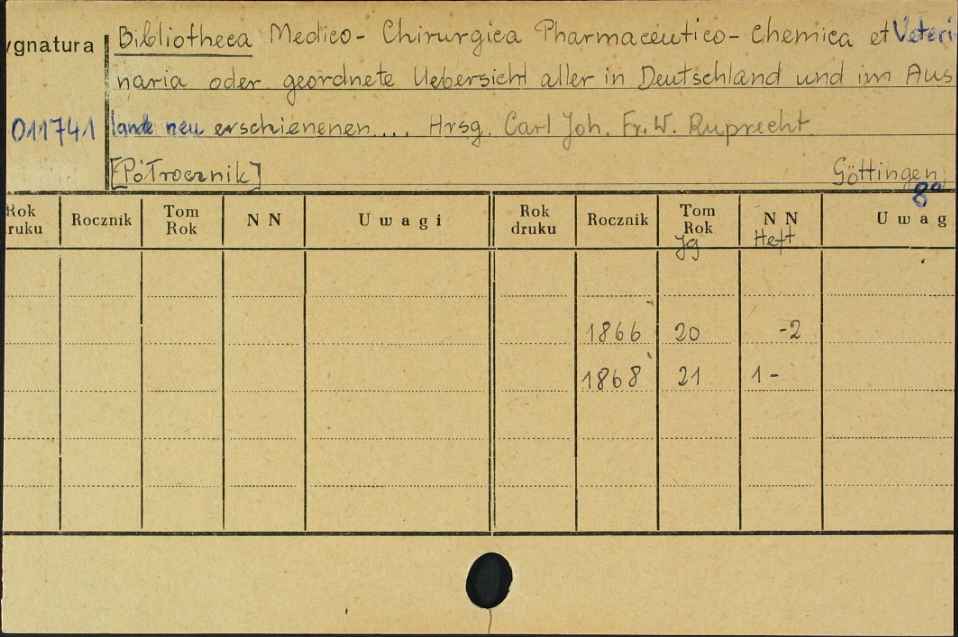 ygnatura Bibliotheca Medico-Chirurgica Pharmaceutico-Chemica et Veteri
naria oder geordnete Uebersicht aller in Deutschland und im Aus
011741 lande neu erschienenen.... Hrsg. Carl Joh. Fr. W. Ruprecht
[Półrocznik] Göttingen
8°
Rok druku Rocznik Tom Rok N N Uwagi Rok druku Rocznik Tom Rok N N Uwag
Jg Heft
1866 20 -2
1868 21 1-